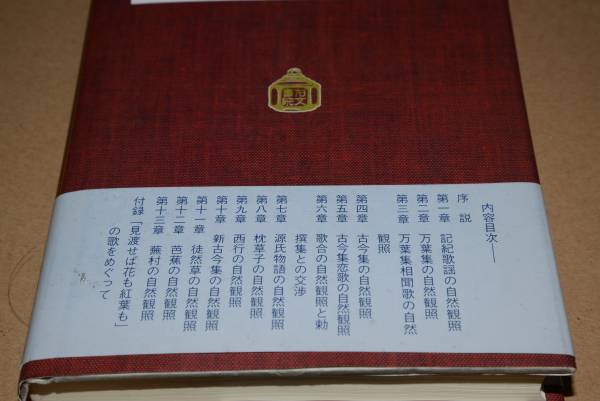 内容目次――
序説
第一章　記紀歌謡の自然観照
第二章　万葉集の自然観照
第三章　万葉集相聞歌の自然
観照
第四章　古今集の自然観照
第五章　古今集恋歌の自然観照
第六章　歌合の自然観照と勅
撰集との交渉
第七章　源氏物語の自然観照
第八章　枕草子の自然観照
第九章　西行の自然観照
第十章　新古今集の自然観照
第十一章　徒然草の自然観照
第十二章　芭蕉の自然観照
第十三章　蕪村の自然観照
付録「見渡せば花も紅葉も」
の歌をめぐって